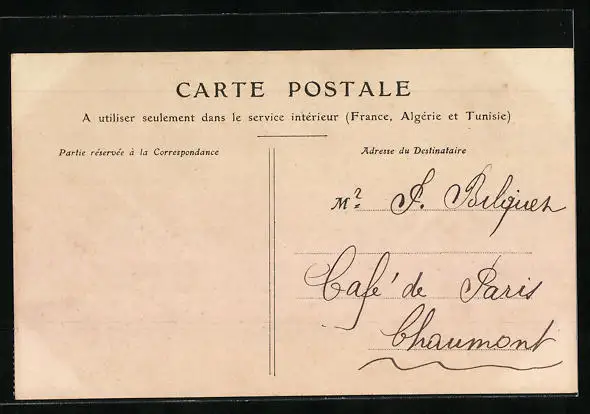 CARTE POSTALE
A utiliser seulement dans le service intérieur (France, Algérie et Tunisie)
Partie réservée à la Correspondance
Adresse du Destinataire
Mr
Café de Paris
Chaumont